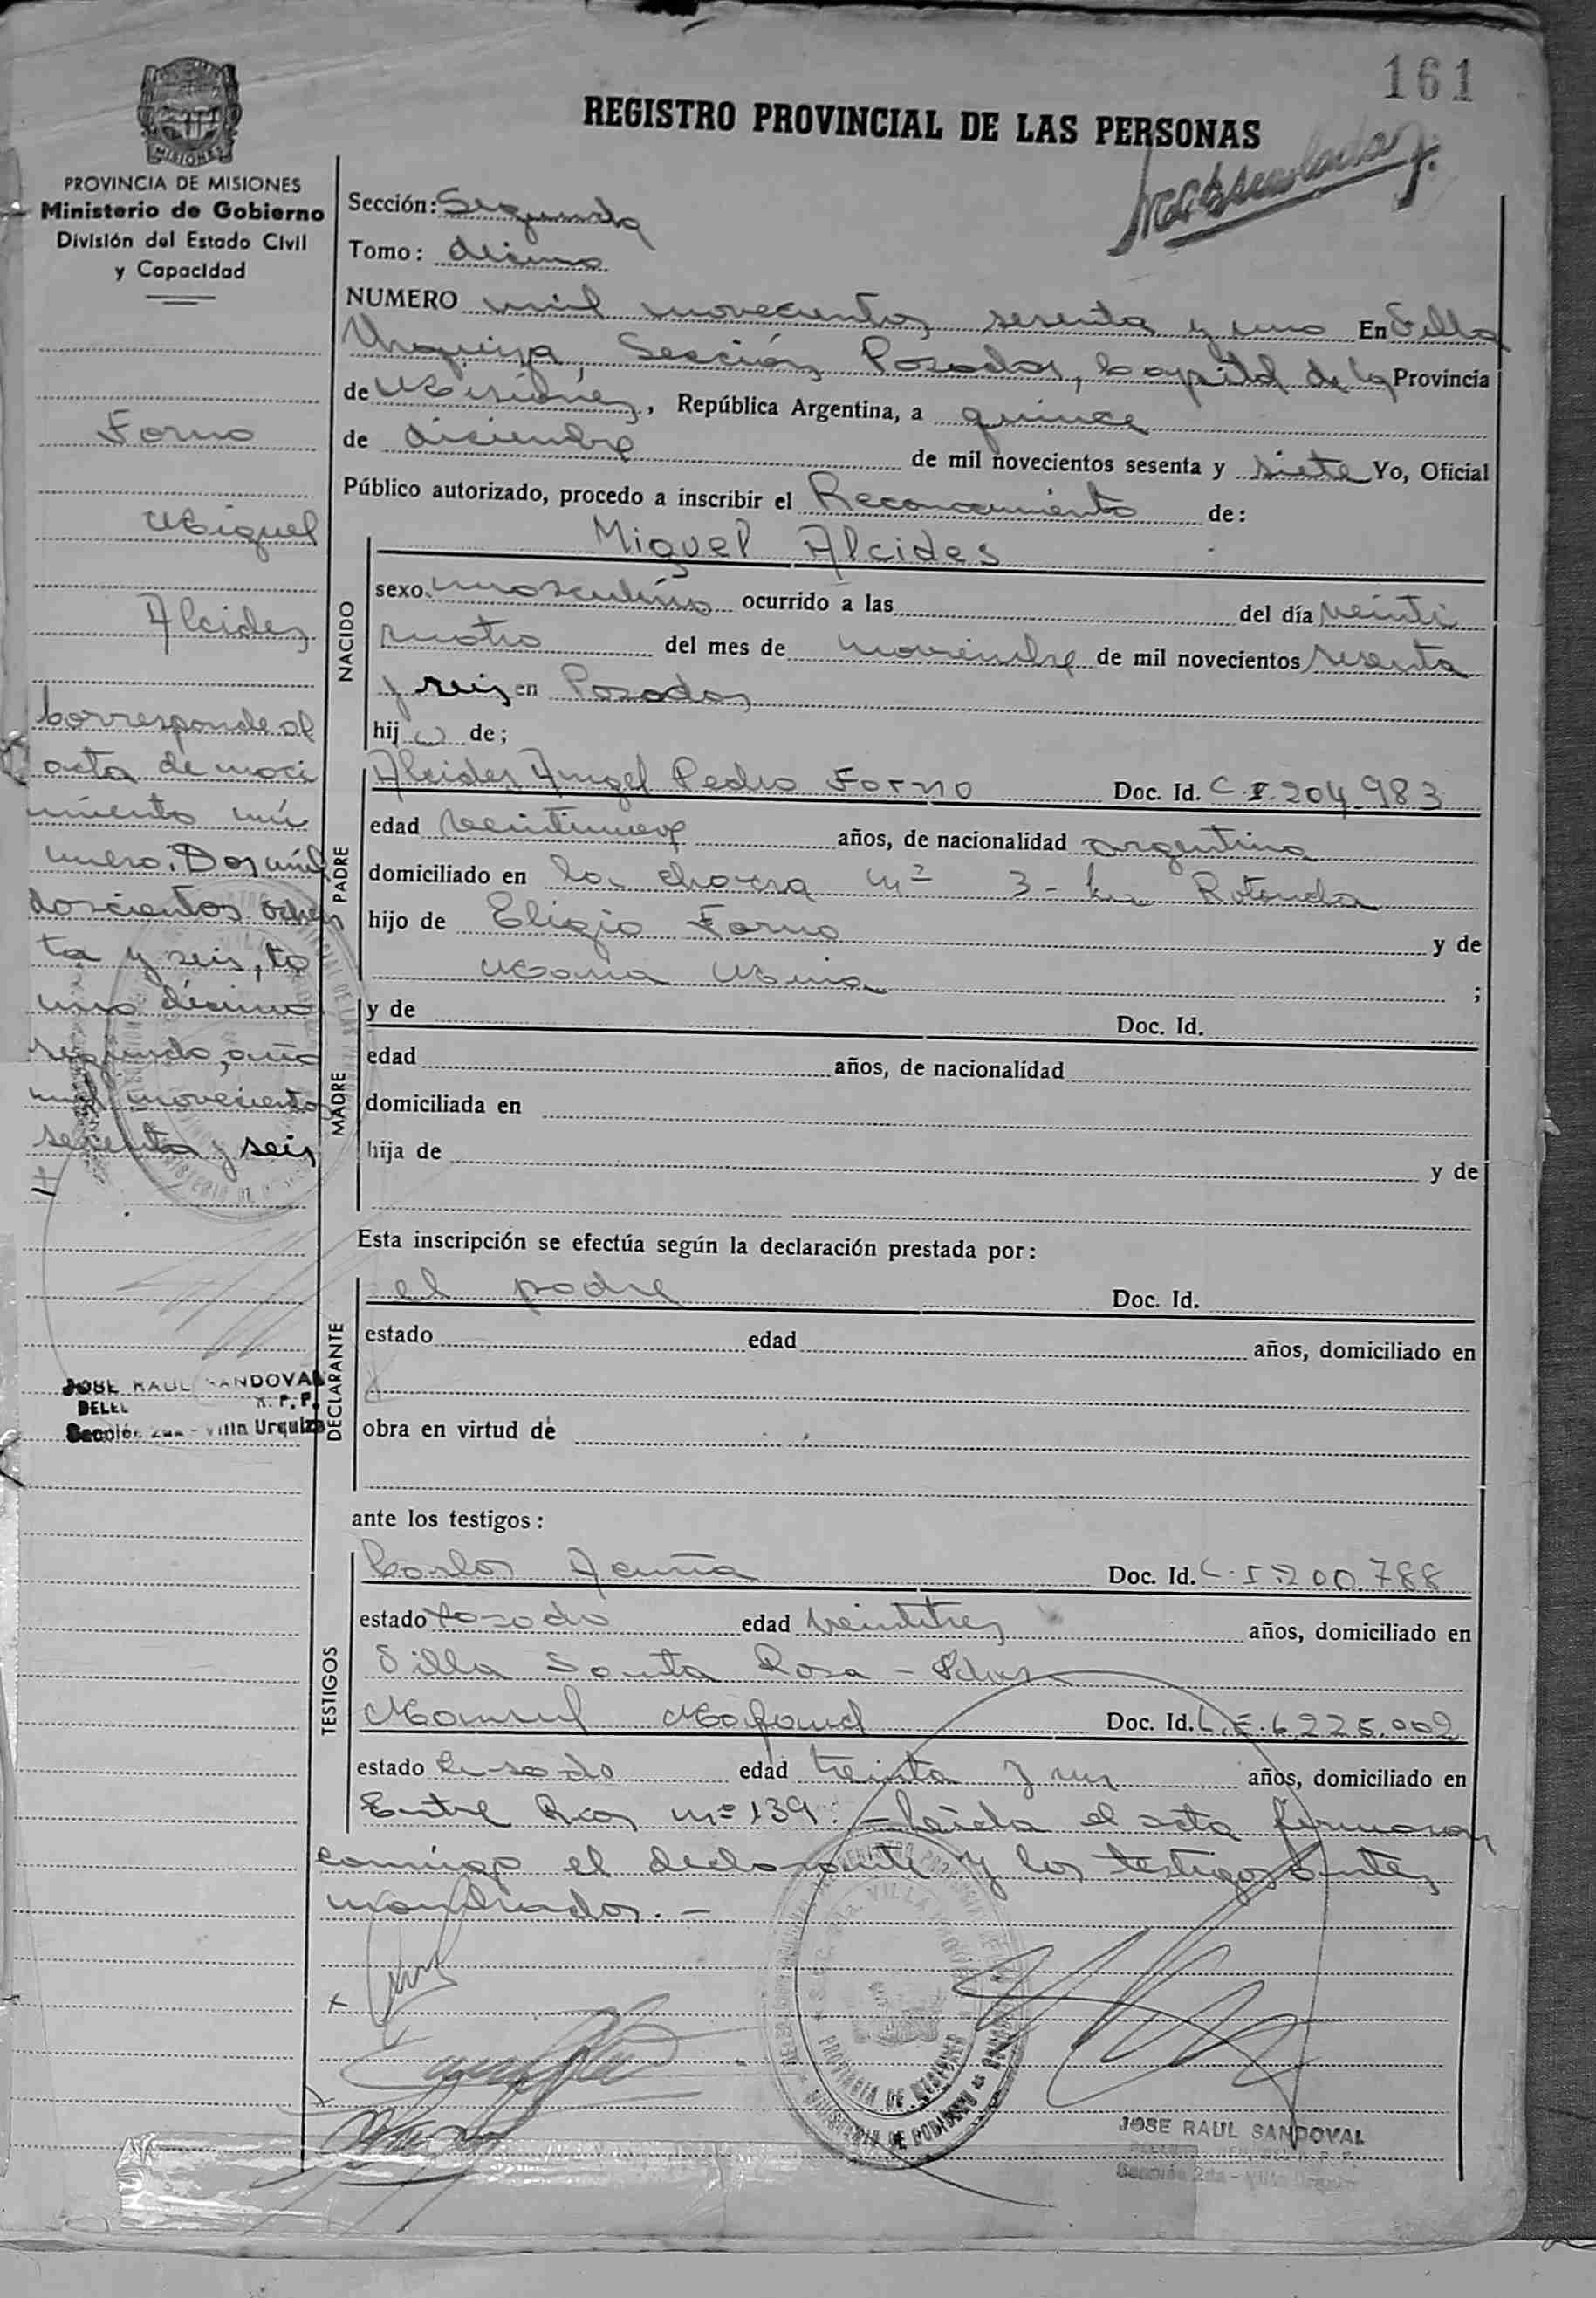 161
REGISTRO PROVINCIAL DE LAS PERSONAS
MISIONES
PROVINCIA DE MISIONES
Ministerio de Gobierno
División del Estado Civil
y Capacidad
Forno
Miguel
Alcides
Corresponde al
acta de naci
miento nú
mero. Dos mil
doscientos ochen
ta y seis, to
mo décimo
segundo, año
mil novecientos
sesenta y seis
JOSE RAUL SANDOVAL
R. P. P.
Sección 2da - Villa Urquiza
Sección: Segunda
Tomo: décimo
NUMERO mil novecientos sesenta y uno En Villa
Urquiza, Sección, Posadas, Capital de la Provincia
de Misiones, República Argentina, a quince
de diciembre de mil novecientos sesenta y siete Yo, Oficial
Público autorizado, procedo a inscribir el Reconocimiento de:
NACIDO
Miguel Alcides
sexo masculino ocurrido a las del día veinti
cuatro del mes de noviembre de mil novecientos sesenta
y seis en Posadas
hijo de;
PADRE
Alcides Angel Pedro Forno Doc. Id. C.I. 204.983
edad veintinueve años, de nacionalidad argentina
domiciliado en la chacra nº 3 - Rotonda
hijo de Eligio Forno y de
Maria ;
MADRE
y de Doc. Id.
edad años, de nacionalidad
domiciliada en
hija de y de
Esta inscripción se efectúa según la declaración prestada por:
DECLARANTE
el padre Doc. Id.
estado edad años, domiciliado en
obra en virtud de
ante los testigos:
TESTIGOS
Carlos Acuña Doc. Id. C.I. 200.788
estado casado edad veintitres años, domiciliado en
Villa Santa Rosa - Pdas
Manuel Doc. Id. L.E. 6.225.002
estado casado edad treinta y un años, domiciliado en
Entre Rios nº 139. - Leída el acta firmaron
conmigo el declarante y los testigos antes
nombrados. -
PROVINCIA DE MISIONES
MINISTERIO DE GOBIERNO
JOSE RAUL SANDOVAL
Sección 2da - Villa Urquiza